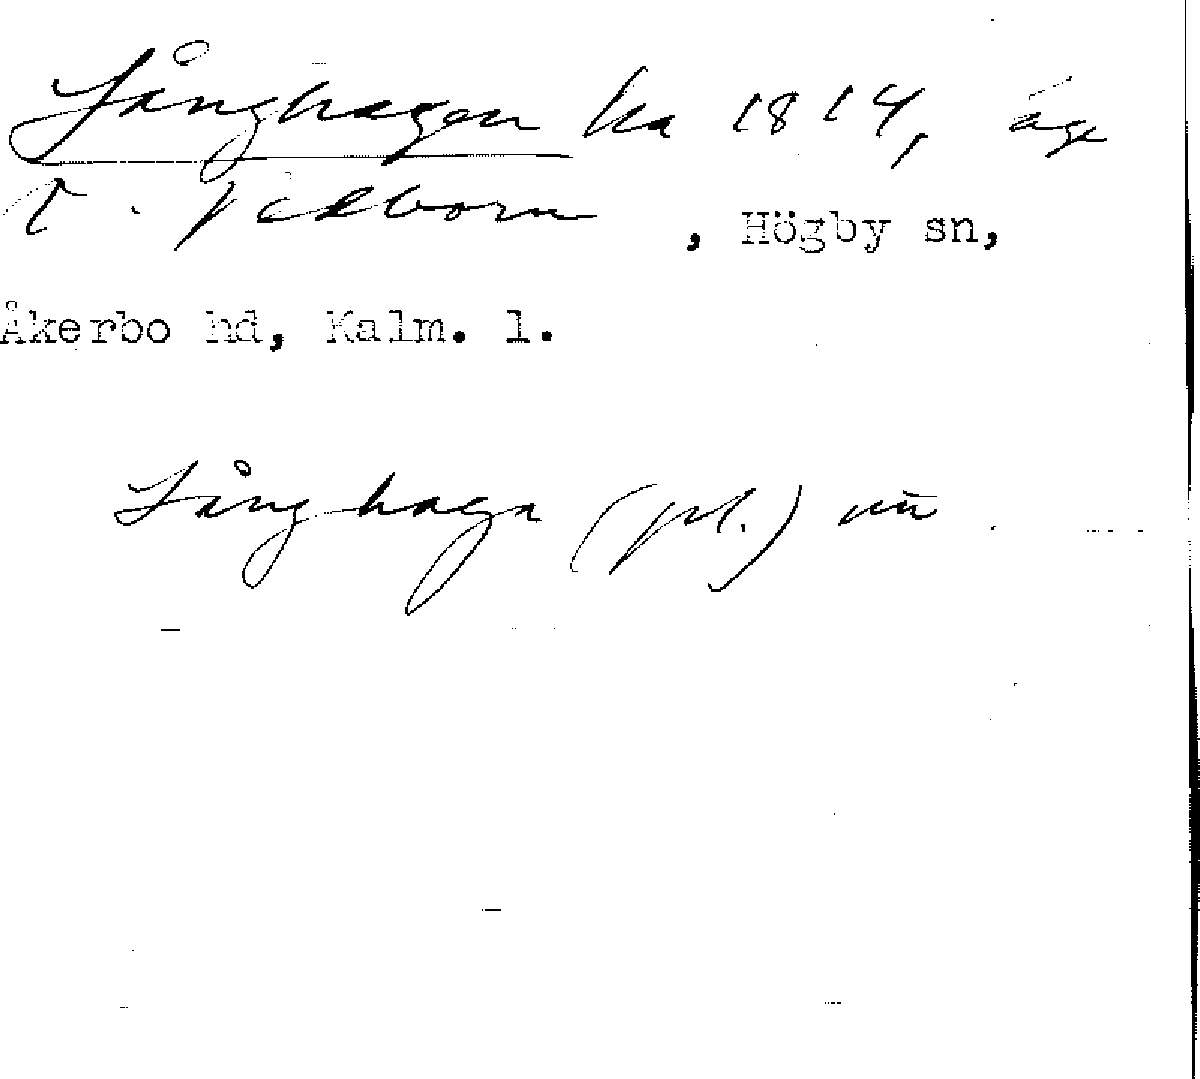 Långhagen ka 1814, äga
t. Jordborn, Högby sn,
Åkerbo hd, Kalm. l.
Långhaga (pl.) nu